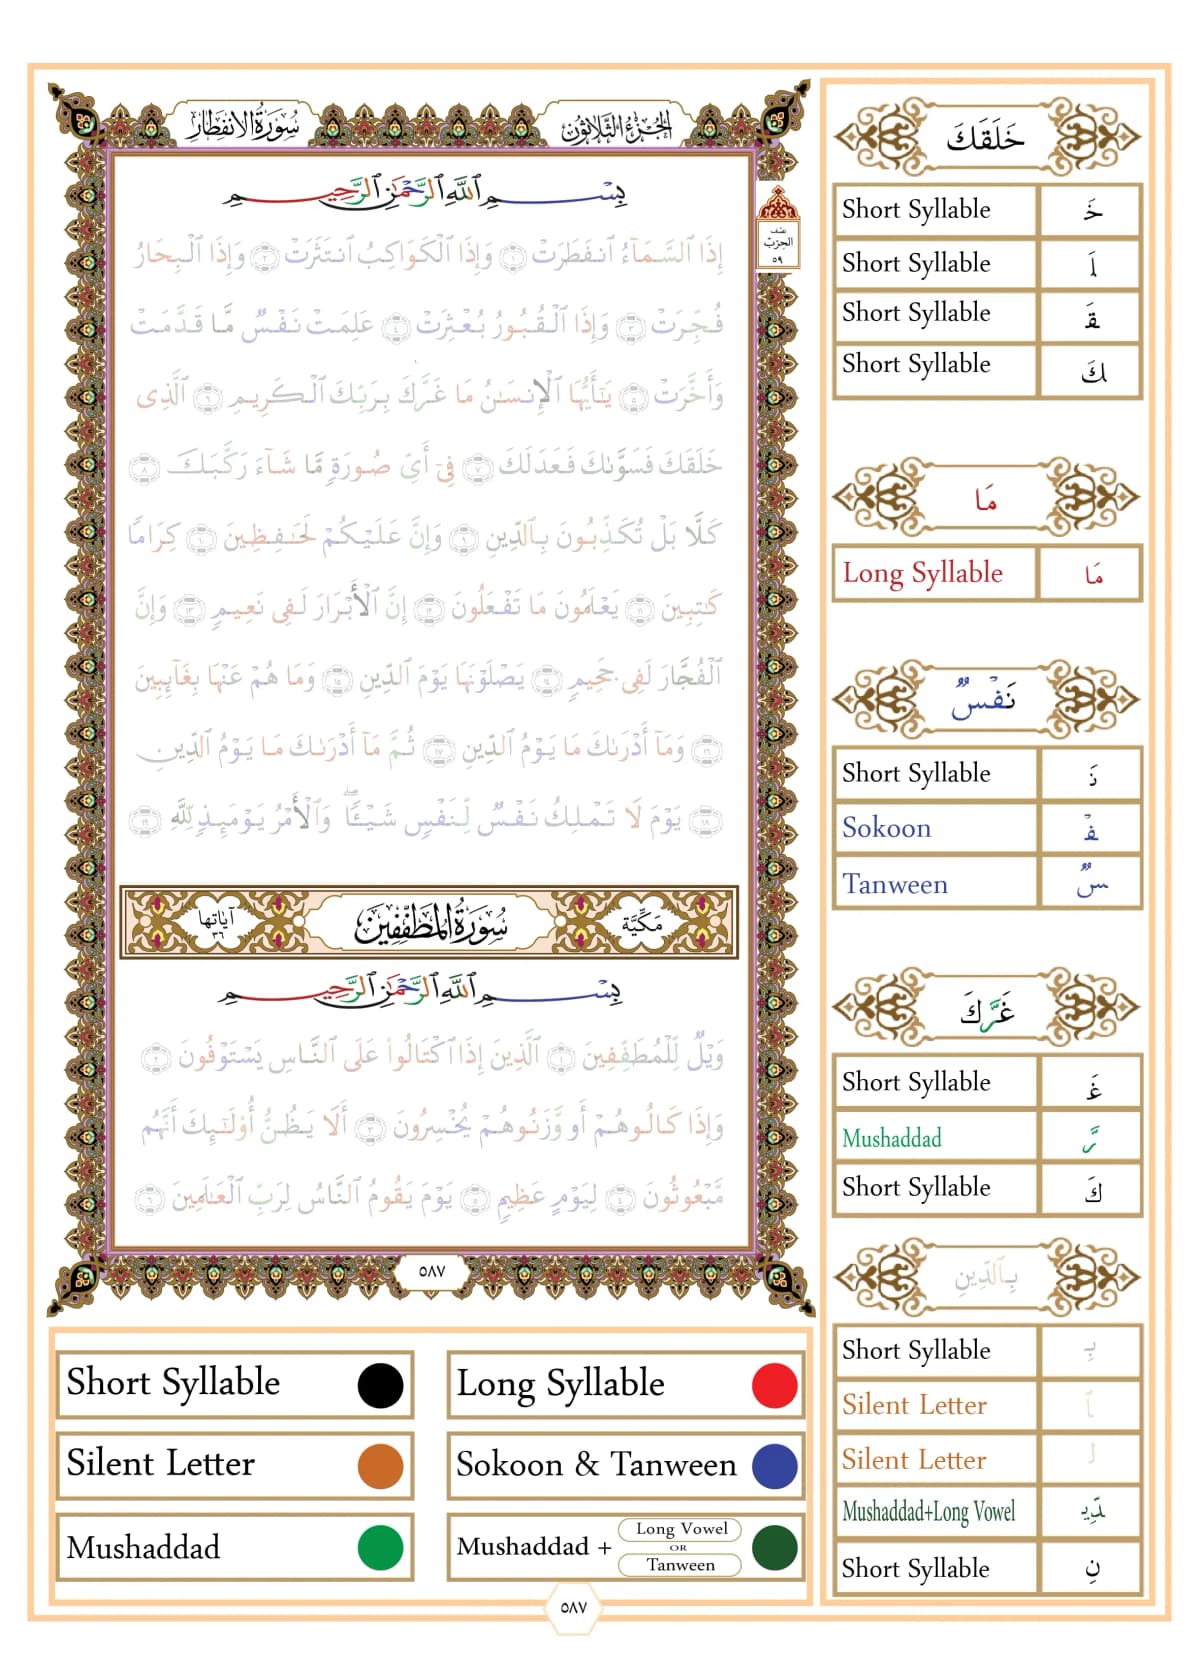 سُورَةُ الانفِطَار
الجُزْءُ الثَّلَاثُون
نصف
الحِزْب
٥٩
بِسْمِ ٱللَّهِ ٱلرَّحْمَٰنِ ٱلرَّحِيمِ
إِذَا ٱلسَّمَآءُ ٱنفَطَرَتْ ١ وَإِذَا ٱلْكَوَاكِبُ ٱنتَثَرَتْ ٢ وَإِذَا ٱلْبِحَارُ
فُجِّرَتْ ٣ وَإِذَا ٱلْقُبُورُ بُعْثِرَتْ ٤ عَلِمَتْ نَفْسٌ مَّا قَدَّمَتْ
وَأَخَّرَتْ ٥ يَٰٓأَيُّهَا ٱلْإِنسَٰنُ مَا غَرَّكَ بِرَبِّكَ ٱلْكَرِيمِ ٦ ٱلَّذِى
خَلَقَكَ فَسَوَّىٰكَ فَعَدَلَكَ ٧ فِىٓ أَىِّ صُورَةٍ مَّا شَآءَ رَكَّبَكَ ٨
كَلَّا بَلْ تُكَذِّبُونَ بِٱلدِّينِ ٩ وَإِنَّ عَلَيْكُمْ لَحَٰفِظِينَ ١٠ كِرَامًا
كَٰتِبِينَ ١١ يَعْلَمُونَ مَا تَفْعَلُونَ ١٢ إِنَّ ٱلْأَبْرَارَ لَفِى نَعِيمٍ ١٣ وَإِنَّ
ٱلْفُجَّارَ لَفِى جَحِيمٍ ١٤ يَصْلَوْنَهَا يَوْمَ ٱلدِّينِ ١٥ وَمَا هُمْ عَنْهَا بِغَآئِبِينَ
١٦ وَمَآ أَدْرَىٰكَ مَا يَوْمُ ٱلدِّينِ ١٧ ثُمَّ مَآ أَدْرَىٰكَ مَا يَوْمُ ٱلدِّينِ
١٨ يَوْمَ لَا تَمْلِكُ نَفْسٌ لِّنَفْسٍ شَيْـًٔا ۖ وَٱلْأَمْرُ يَوْمَئِذٍ لِّلَّهِ ١٩
مَكِّيَّة
سُورَةُ المُطَفِّفِينَ
آيَاتُها ٣٦
بِسْمِ ٱللَّهِ ٱلرَّحْمَٰنِ ٱلرَّحِيمِ
وَيْلٌ لِّلْمُطَفِّفِينَ ١ ٱلَّذِينَ إِذَا ٱكْتَالُوا۟ عَلَى ٱلنَّاسِ يَسْتَوْفُونَ ٢
وَإِذَا كَالُوهُمْ أَو وَّزَنُوهُمْ يُخْسِرُونَ ٣ أَلَا يَظُنُّ أُو۟لَٰٓئِكَ أَنَّهُم
مَّبْعُوثُونَ ٤ لِيَوْمٍ عَظِيمٍ ٥ يَوْمَ يَقُومُ ٱلنَّاسُ لِرَبِّ ٱلْعَٰلَمِينَ ٦
٥٨٧
خَلَقَكَ
Short Syllable خَ
Short Syllable لَ
Short Syllable قَ
Short Syllable كَ
مَا
Long Syllable مَا
نَفْسٌ
Short Syllable نَ
Sokoon فْ
Tanween سٌ
غَرَّكَ
Short Syllable غَ
Mushaddad رَّ
Short Syllable كَ
بِٱلدِّينِ
Short Syllable بِ
Silent Letter ٱ
Silent Letter ل
Mushaddad+Long Vowel دِّي
Short Syllable نِ
Short Syllable
Long Syllable
Silent Letter
Sokoon & Tanween
Mushaddad
Mushaddad + Long Vowel OR Tanween
٥٨٧